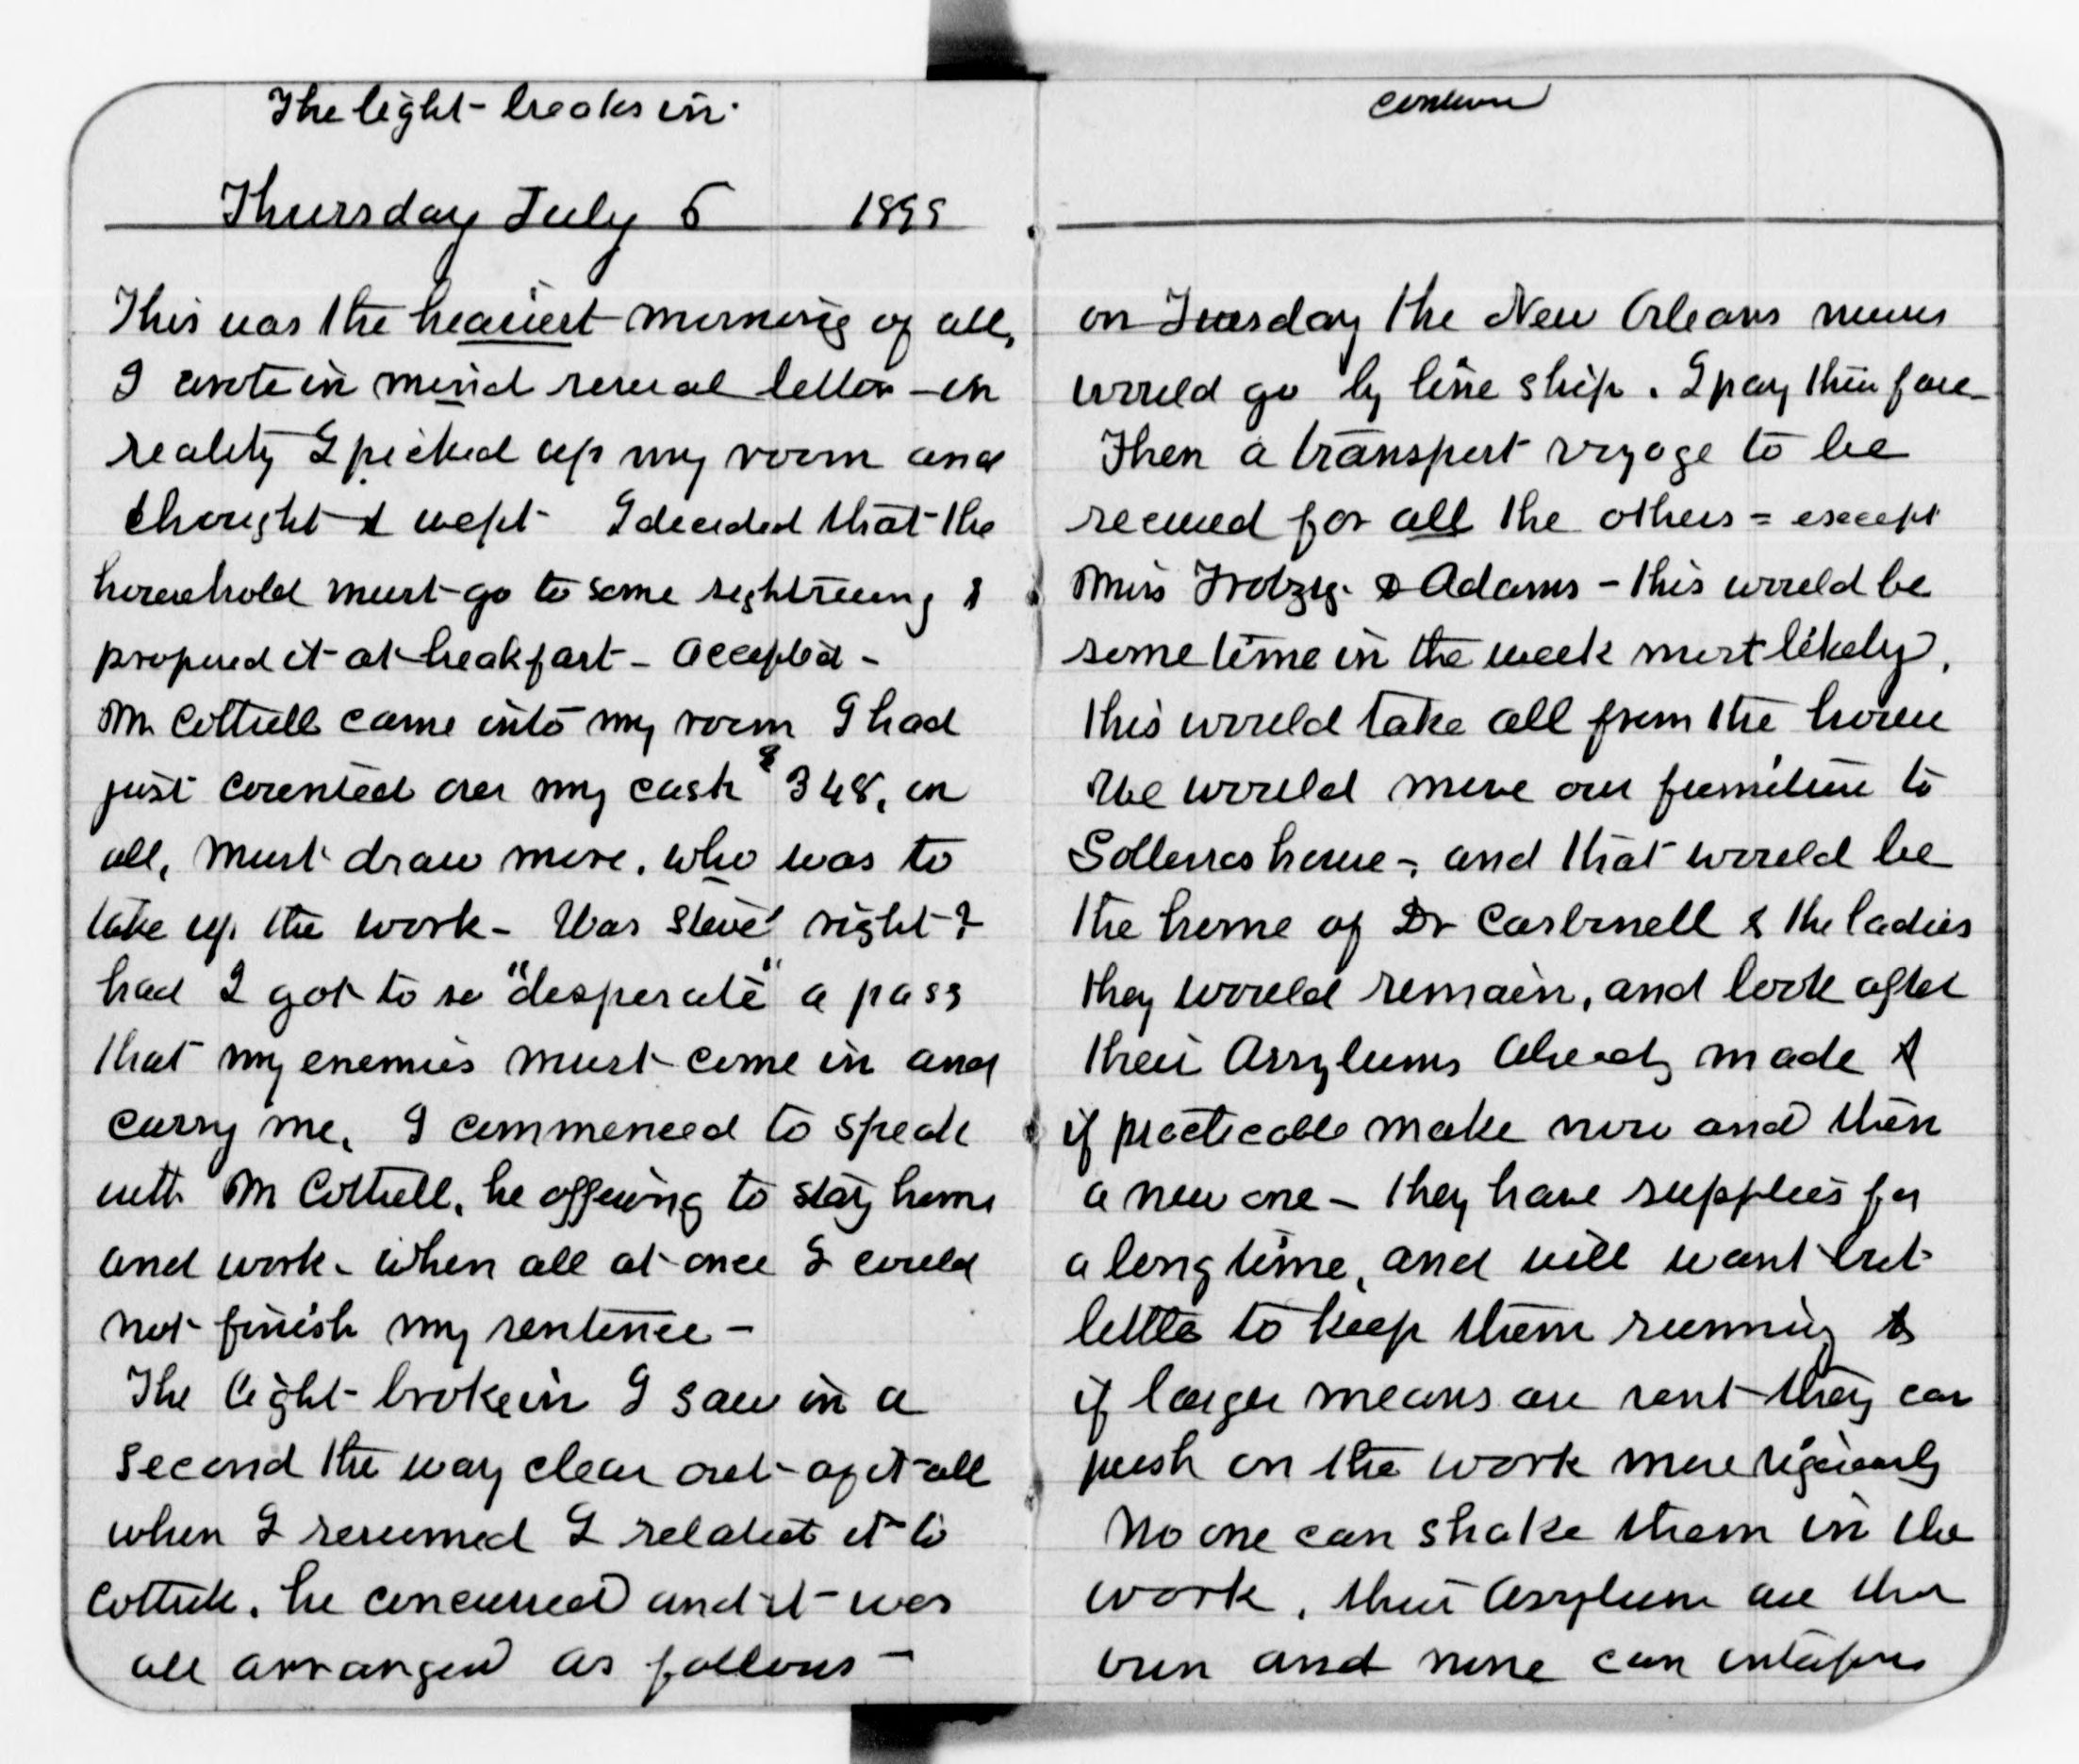 The light breaks in.
Thursday July 6 1899
This was the heaviest morning of all,
I wrote in mind several letters - in
reality I picked up my room and
thought & wept - I decided that the
household must go to some sightseeing &
proposed it at breakfast - Accepted -
Mr Cottrell came into my room I had
just counted over my cash $348, in
all, must draw more. who was to
take up the work - Was Steve right?
had I got to so "desperate" a pass
that my enemies must come in and
carry me, I commenced to speak
with Mr Cottrell, he offering to stay home
and work - when all at once I could
not finish my sentence -
The light broke in I saw in a
second the way clear out of it all
when I resumed I related it to
Cottrell. he concurred and it was
all arranged as follows -
on Tuesday the New Orleans nurses
would go by line ship. I pay their fare -
Then a transport voyage to be
secured for all the others = except
Miss & Adams - this would be
some time in the week most likely,
this would take all from the house
We would move our furniture to
house -, and that would be
the home of Dr Carbonell & the ladies
they would remain, and look after
their Assylums already made &
if practicable make now and then
a new one - they have supplies for
a long time, and will want but
little to keep them running &
if larger means are sent they can
push on the work more vigorously
No one can shake them in the
work, their Asylum are their
own and none can interfere